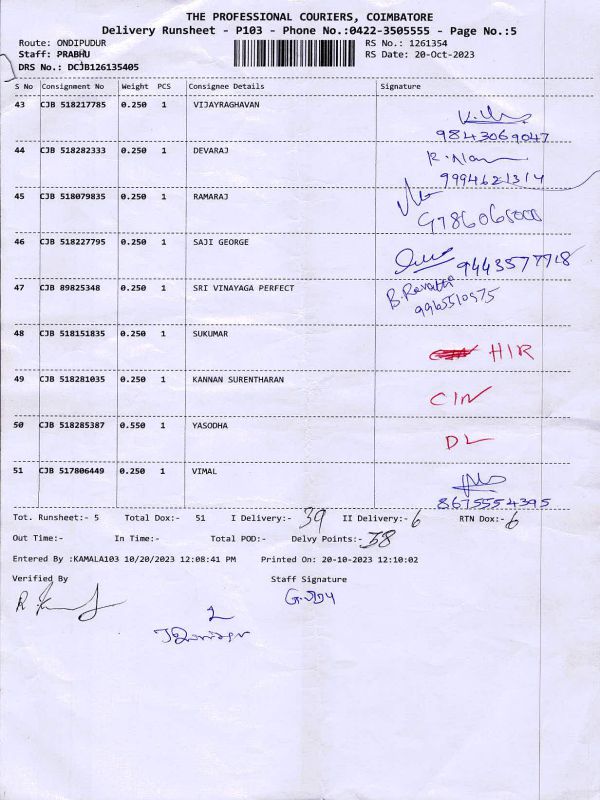 THE PROFESSIONAL COURIERS, COIMBATORE
Delivery Runsheet - P103 - Phone No.:0422-3505555 - Page No.:5
Route: ONDIPUDUR
RS No.: 1261354
Staff: PRABHU
RS Date: 20-Oct-2023
DRS No.: DCJB126135405
S No Consignment No Weight PCS Consignee Details Signature
43 CJB 518217785 0.250 1 VIJAYRAGHAVAN
9843069047
44 CJB 518282333 0.250 1 DEVARAJ
9994621314
45 CJB 518079835 0.250 1 RAMARAJ
9786065000
46 CJB 518227795 0.250 1 SAJI GEORGE
9443577718
47 CJB 89825348 0.250 1 SRI VINAYAGA PERFECT
B. Revathi
9965510575
48 CJB 518151835 0.250 1 SUKUMAR
HIR
49 CJB 518281035 0.250 1 KANNAN SURENTHARAN
CIN
50 CJB 518285387 0.550 1 YASODHA
DL
51 CJB 517806449 0.250 1 VIMAL
8675554395
Tot. Runsheet:- 5 Total Dox:- 51 I Delivery:- 39 II Delivery:- 6 RTN Dox:- 6
Out Time:- In Time:- Total POD:- Delvy Points:- 38
Entered By :KAMALA103 10/20/2023 12:08:41 PM Printed On: 20-10-2023 12:10:02
Verified By Staff Signature